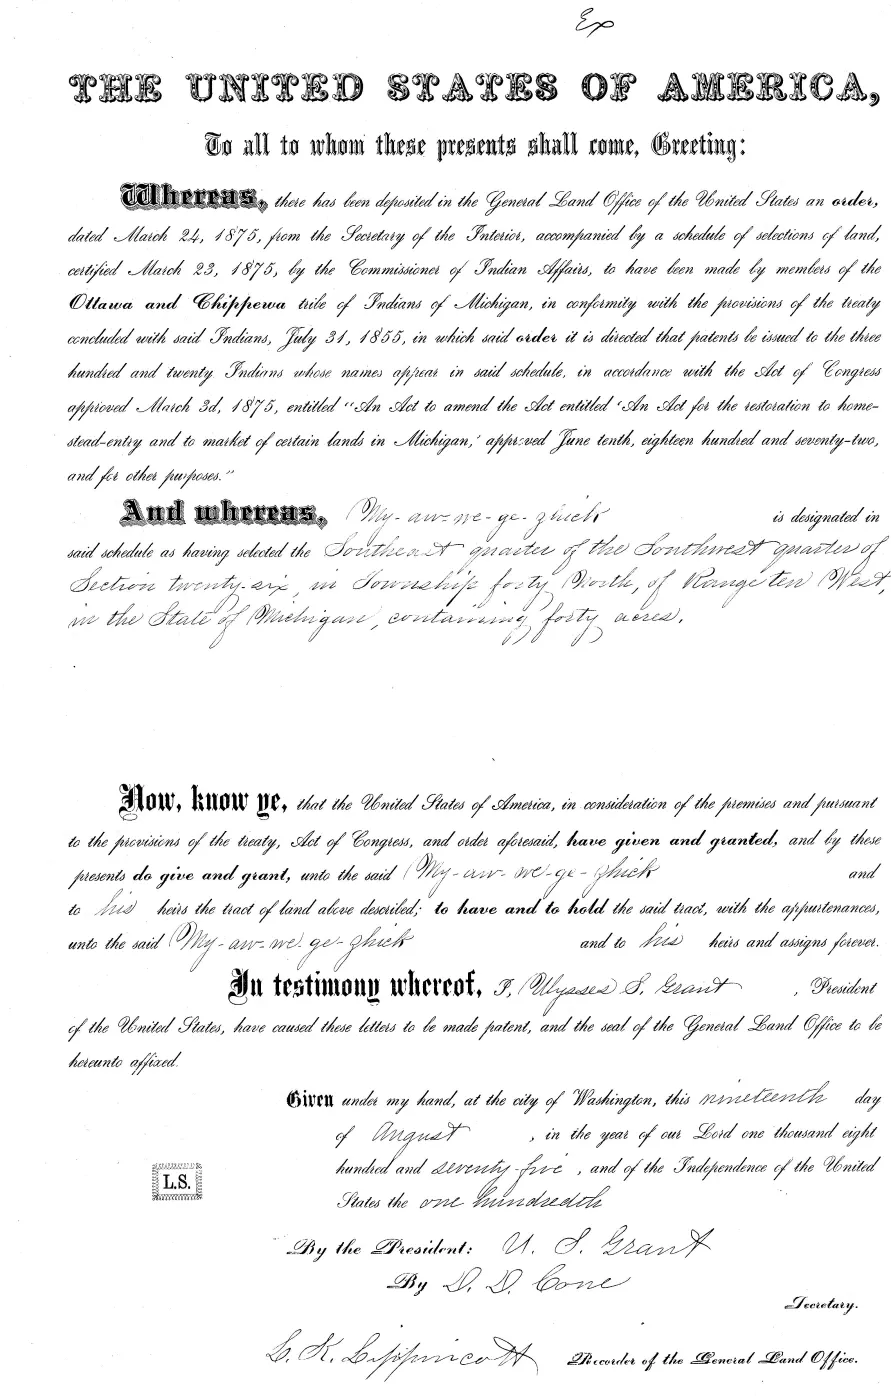 Ex
THE UNITED STATES OF AMERICA,
To all to whom these presents shall come, Greeting:
Whereas, there has been deposited in the General Land Office of the United States an order,
dated March 24, 1875, from the Secretary of the Interior, accompanied by a schedule of selections of land,
certified March 23, 1875, by the Commissioner of Indian Affairs, to have been made by members of the
Ottawa and Chippewa tribe of Indians of Michigan, in conformity with the provisions of the treaty
concluded with said Indians, July 31, 1855, in which said order it is directed that patents be issued to the three
hundred and twenty Indians whose names appear in said schedule, in accordance with the Act of Congress
approved March 3d, 1875, entitled "An Act to amend the Act entitled 'An Act for the restoration to home-
stead-entry and to market of certain lands in Michigan,' approved June tenth, eighteen hundred and seventy-two,
and for other purposes."
And whereas, My-aw-we-ge-zhick is designated in
said schedule as having selected the Southeast quarter of the Southwest quarter of
Section twenty-six, in Township forty North, of Range ten West,
in the State of Michigan, containing forty acres.
Now, know ye, that the United States of America, in consideration of the premises and pursuant
to the provisions of the treaty, Act of Congress, and order aforesaid, have given and granted, and by these
presents do give and grant, unto the said My-aw-we-ge-zhick and
to his heirs the tract of land above described; to have and to hold the said tract, with the appurtenances,
unto the said My-aw-we-ge-zhick and to his heirs and assigns forever.
In testimony whereof, I, Ulysses S. Grant, President
of the United States, have caused these letters to be made patent, and the seal of the General Land Office to be
hereunto affixed.
Given under my hand, at the city of Washington, this nineteenth day
of August, in the year of our Lord one thousand eight
hundred and seventy-five, and of the Independence of the United
L.S.
States the one hundredth
By the President: U. S. Grant
By D. D. Cone
Secretary.
L. K. Lippincott Recorder of the General Land Office.